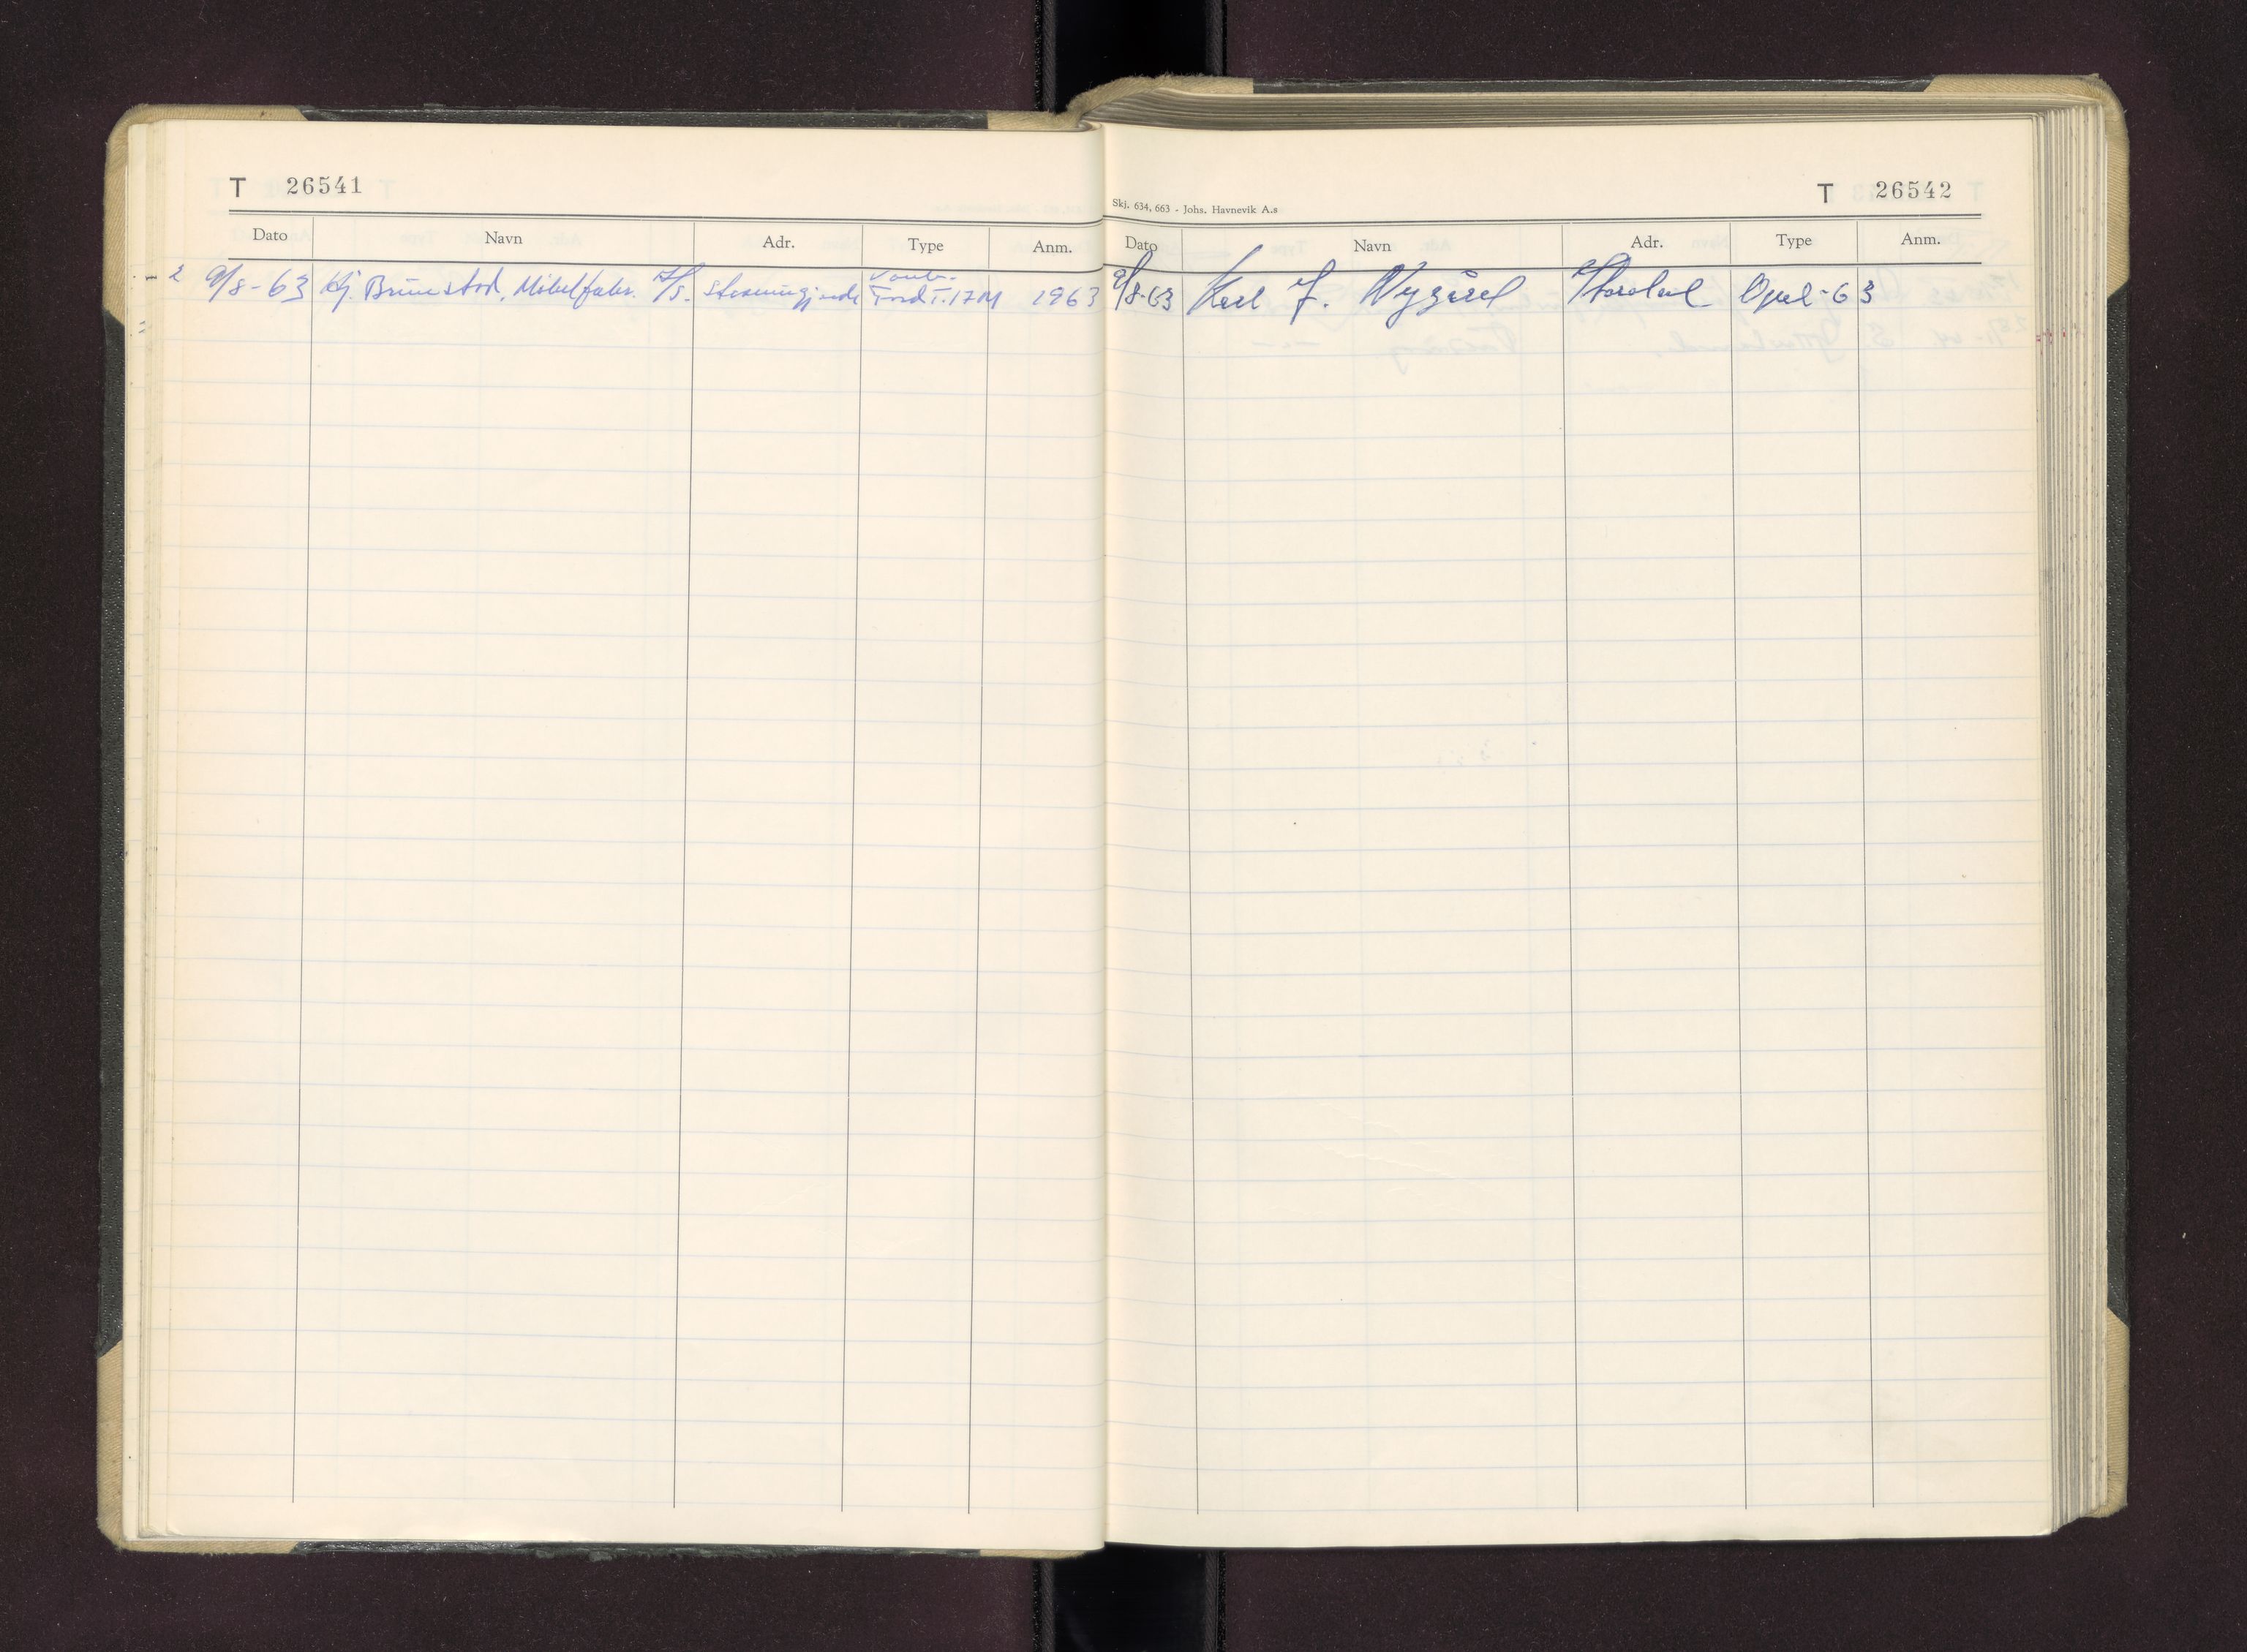 T 26541
Dato Navn Adr. Type Anm.
9/8-63 Hj. Brunstad, Möbelfabr. A/S. Straumgjerde Taunus Ford T. 17M 1963
T 26542
Skj. 634, 663 - Johs. Havnevik A.s
Dato Navn Adr. Type Anm.
9/8-63 Karl J. Nygård Opel-63